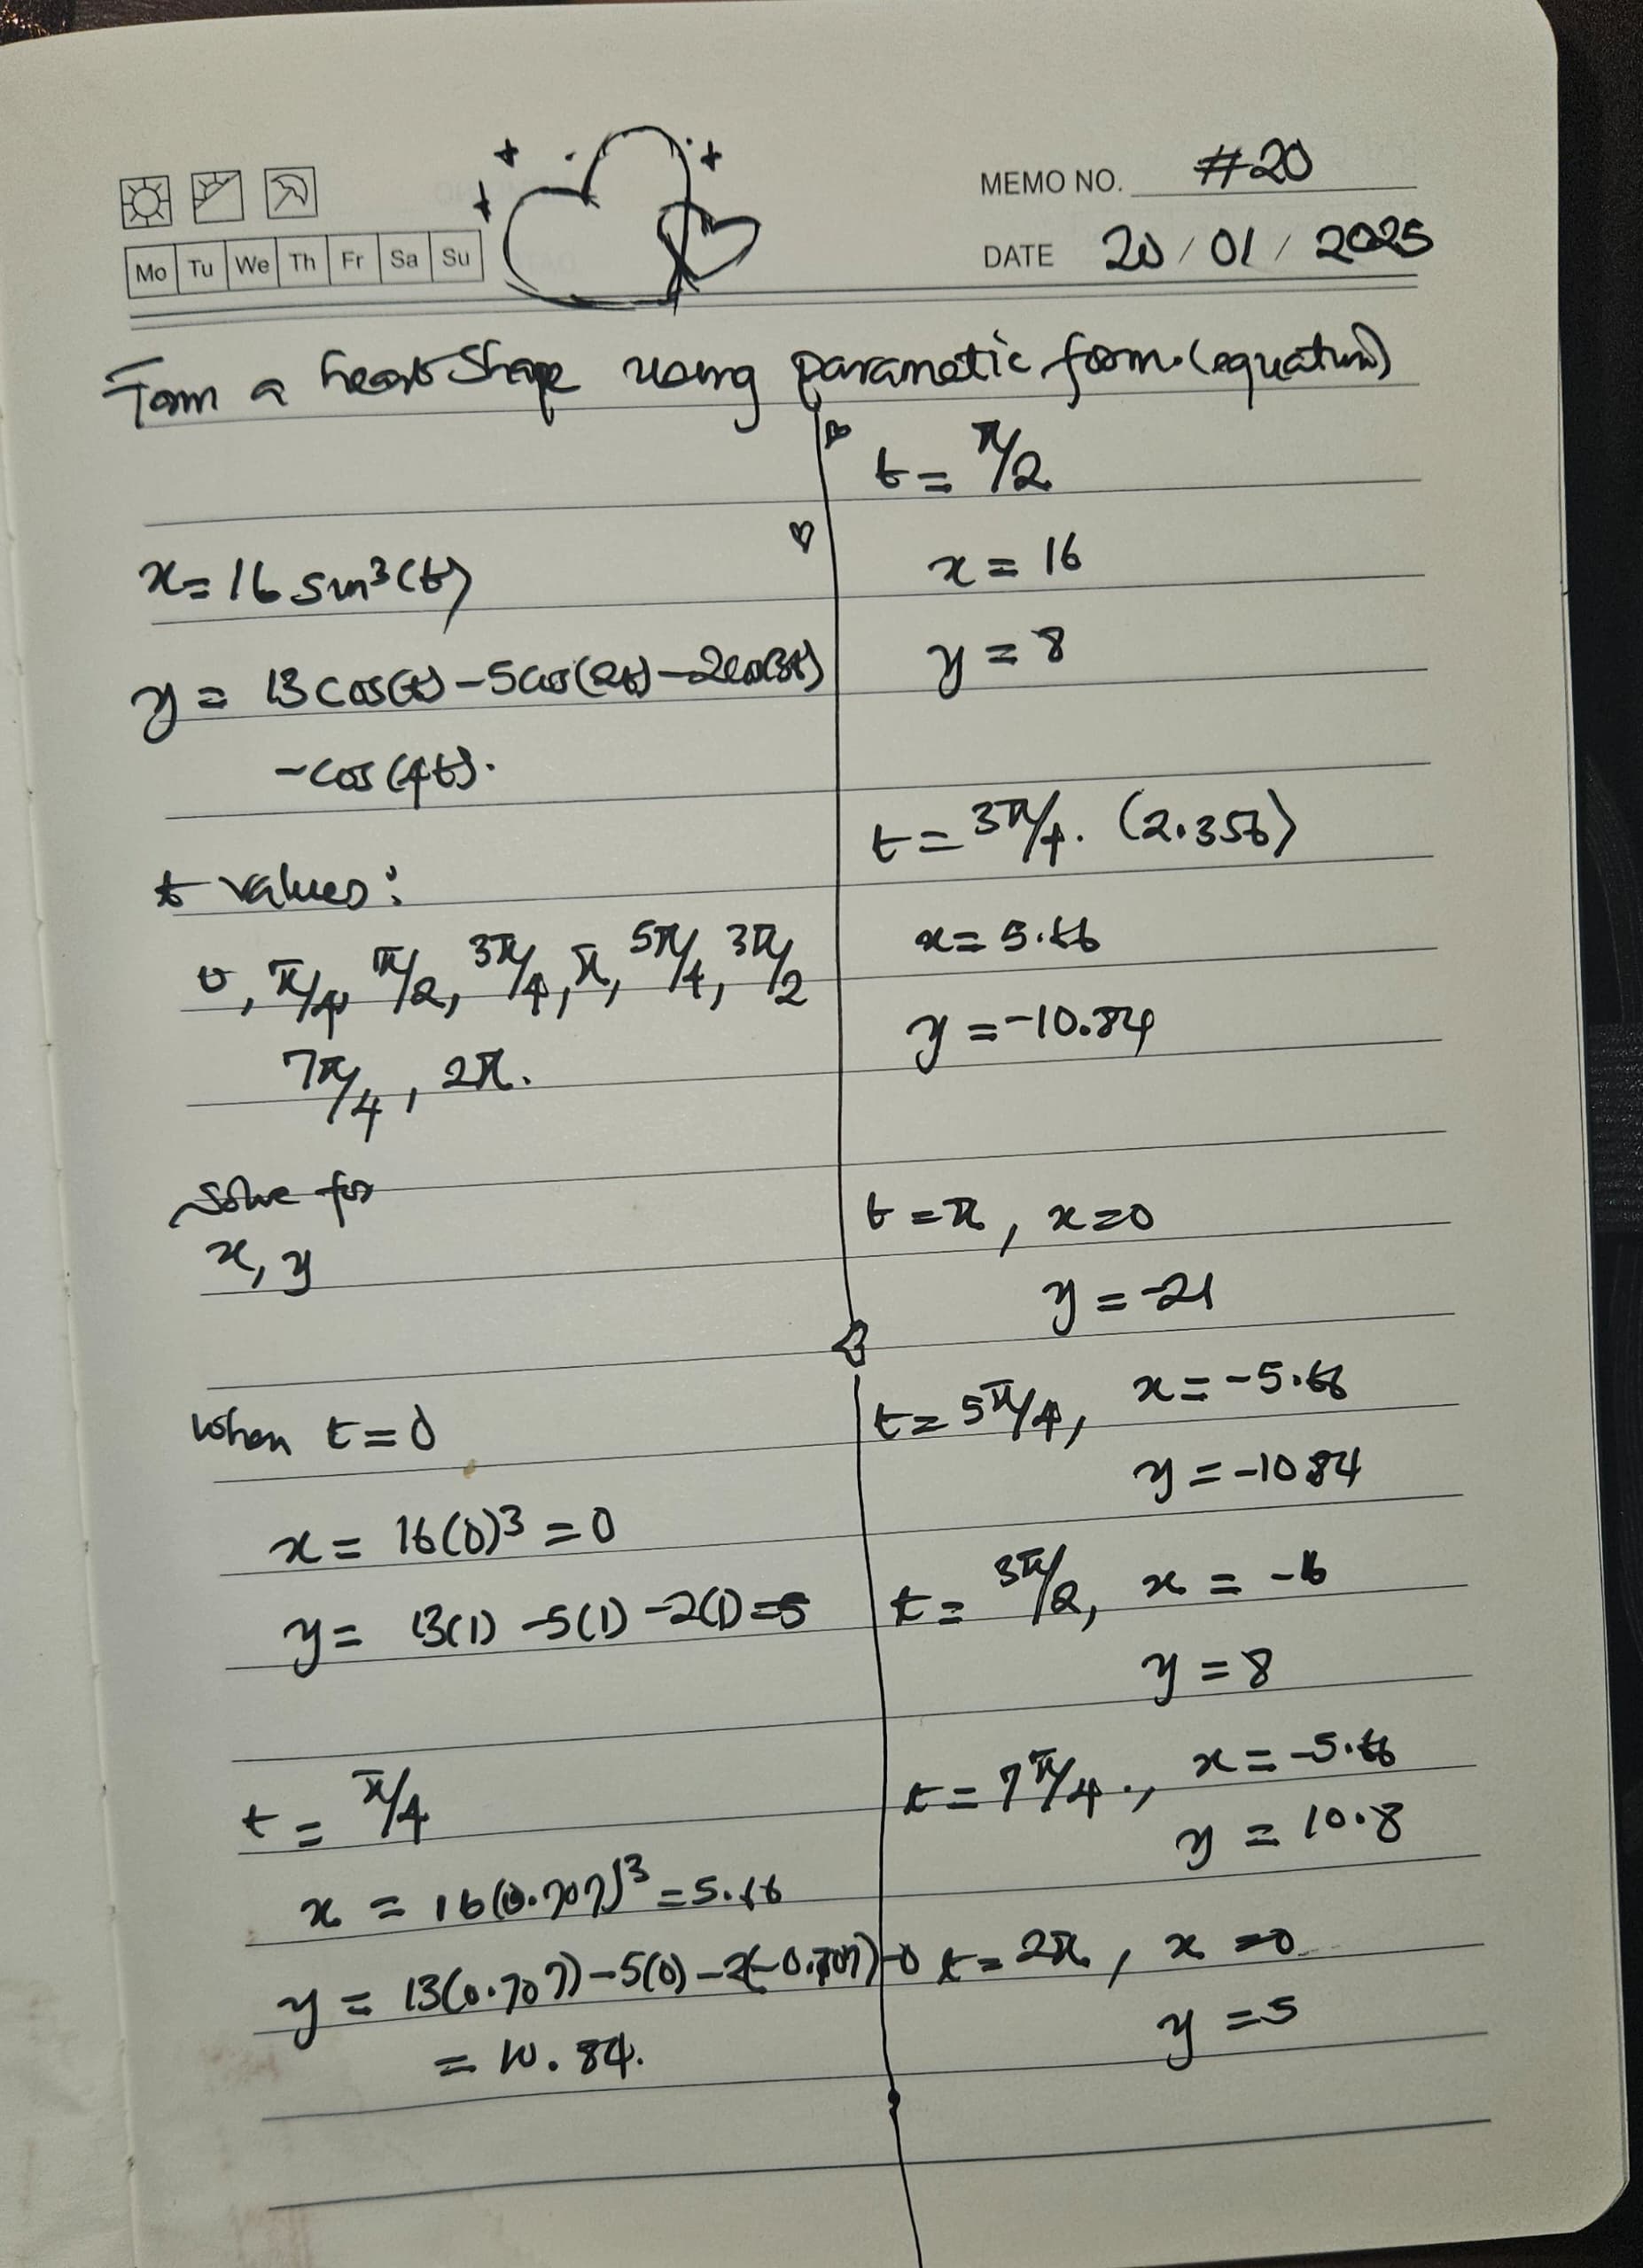 MEMO NO. #20
Mo Tu We Th Fr Sa Su
DATE 20 / 01 / 2025
Form a heart shape using parametic form. (equation)
x = 16 sin³(t)
y = 13 cos(t) - 5cos(2t) - 2cos(3t)
- cos(4t).
t values:
0, π/4, π/2, 3π/4, π, 5π/4, 3π/2
7π/4, 2π.
Solve for
x, y
When t = 0
x = 16(0)³ = 0
y = 13(1) - 5(1) - 2(1) = 5
t = π/4
x = 16(0.707)³ = 5.66
y = 13(0.707) - 5(0) - 2(-0.707) - 0
= 10.84.
t = π/2
x = 16
y = 8
t = 3π/4. (2.356)
x = 5.66
y = -10.84
t = π, x = 0
y = -21
t = 5π/4, x = -5.66
y = -10.84
t = 3π/2, x = -16
y = 8
t = 7π/4., x = -5.66
y = 10.8
t = 2π, x = 0
y = 5